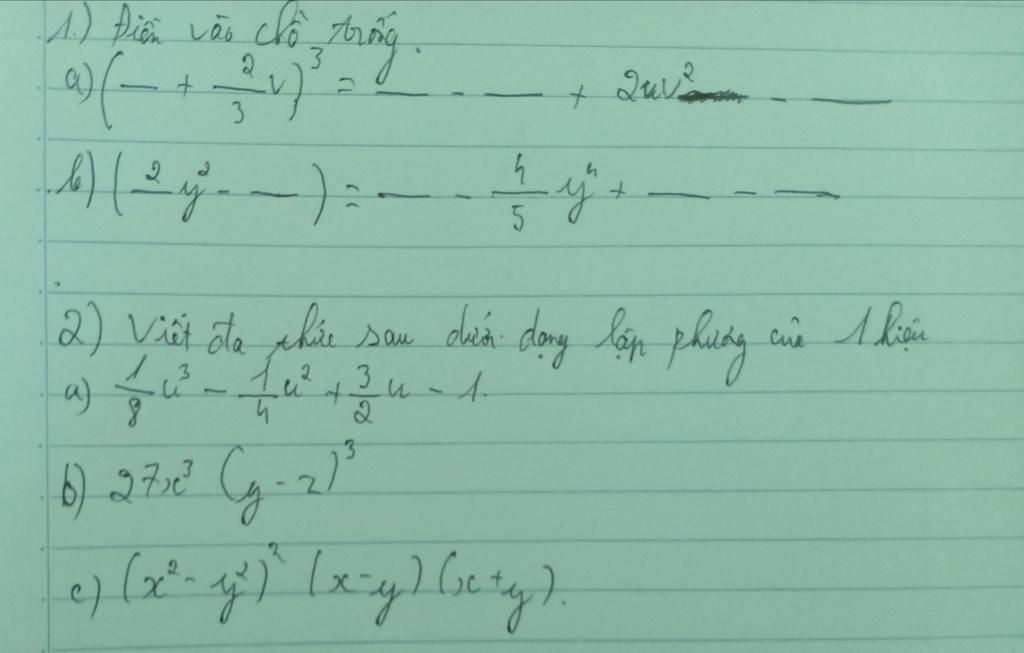 1.) Điền vào chỗ trống.
a) (— + 2/3 v)³ = — - — + 2uv² - —
b) (2/— y² - —) = — - 4/5 y⁴ + — - —
2) Viết đa thức sau dưới dạng lập phương của 1 hiệu
a) 1/8 u³ - 1/4 u² + 3/2 u - 1.
b) 27x³ (y - z)³
c) (x² - y²)² (x - y) (x + y).